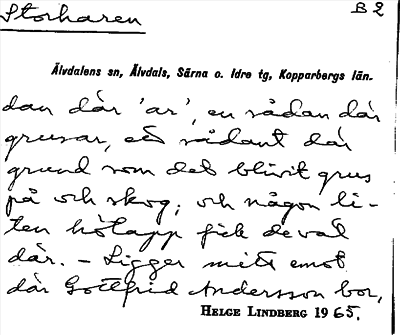 Storharen
B 2
Älvdalens sn, Älvdals, Särna o. Idre tg, Kopparbergs län.
dan där 'ar', en sådan där
grusar, ett sådant där
grund som det blivit grus
på och skog; och någon li-
ten hölapp fick de väl
där. – Ligger mitt emot
där Gottfrid Andersson bor,
HELGE LINDBERG 1965.